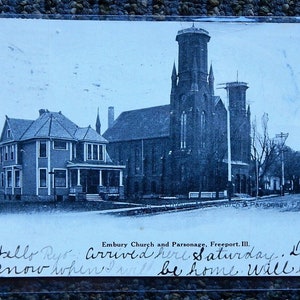 Embury Church and Parsonage, Freeport, Ill.
Hallo Ryo. Arrived here Saturday. D
know when I will be home. Will